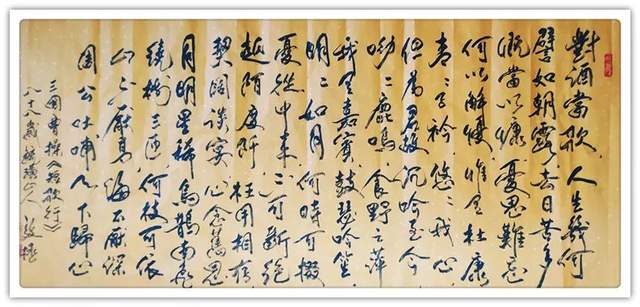 對酒當歌 人生幾何
譬如朝露 去日苦多
慨當以慷 憂思難忘
何以解憂 惟有杜康
青〻子衿 悠〻我心
但為君故 沉吟至今
呦〻鹿鳴 食野之萍
我有嘉賓 鼓瑟吹笙
明〻如月 何時可掇
憂從中來 不可斷絕
越陌度阡 枉用相存
契闊談宴 心念舊恩
月明星稀 烏鵲南飛
繞樹三匝 何枝可依
山不厭高 海不厭深
周公吐哺 天下歸心
三國曹操《短歌行》
八十八歲 山人